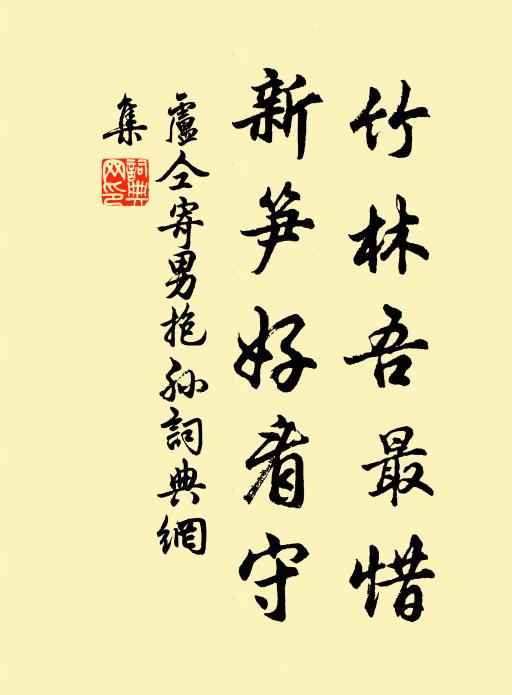 竹林吾最惜
新笋好看守
盧仝寄男抱孫詞典網
集
詞典網印